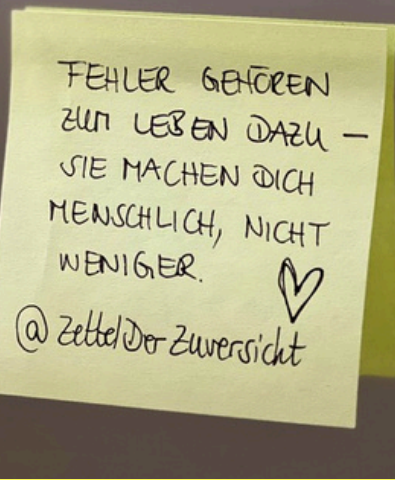 FEHLER GEHÖREN
ZUM LEBEN DAZU –
SIE MACHEN DICH
MENSCHLICH, NICHT
WENIGER.
@ZettelDerZuversicht